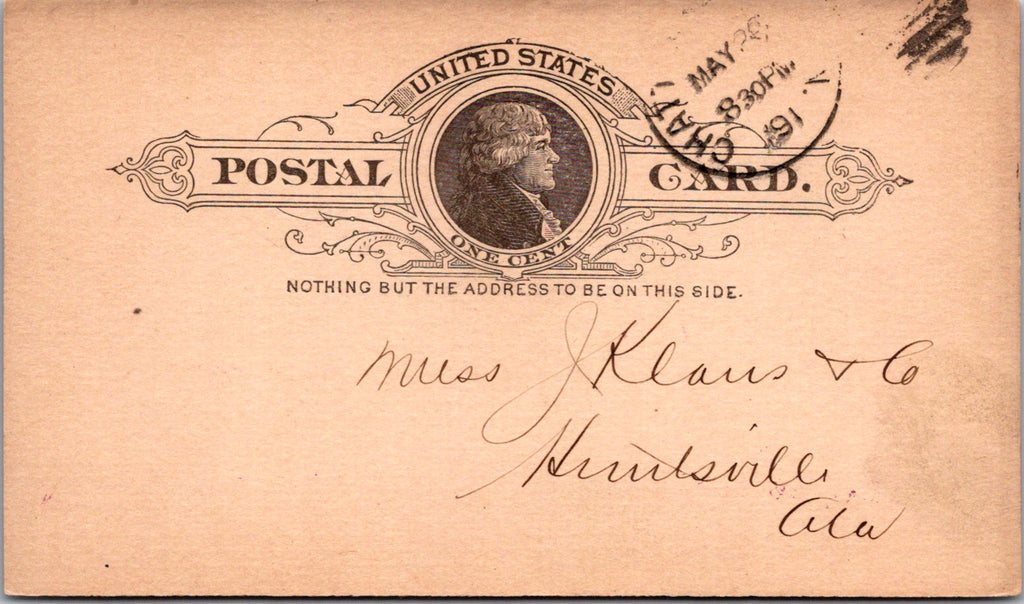 UNITED STATES
POSTAL CARD.
ONE CENT
NOTHING BUT THE ADDRESS TO BE ON THIS SIDE.
CHAT
MAY
8 30 PM
91
Mess J Klaus & Co
Huntsville
Ala